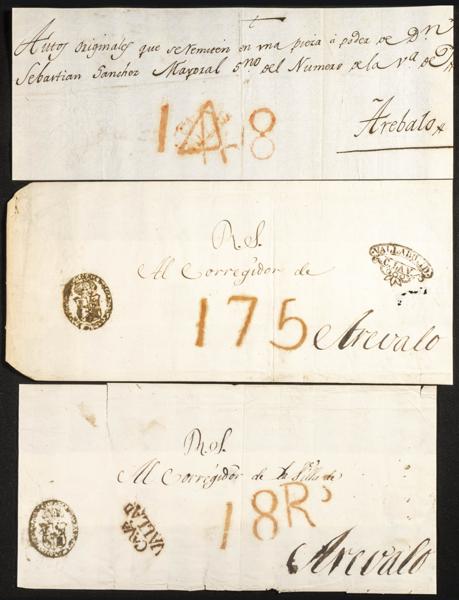 †
Autos Originales que se remiten en una pieza a poder de Dn
Sebastian Sanchez Mayoral Sno del Numero de la va de
Arebalo
148
R. S.
Al Corregidor de
VALLADOLID
175
Arevalo
R. S.
Al Corregidor de la Villa de
VALLAD
18 Rs
Arevalo